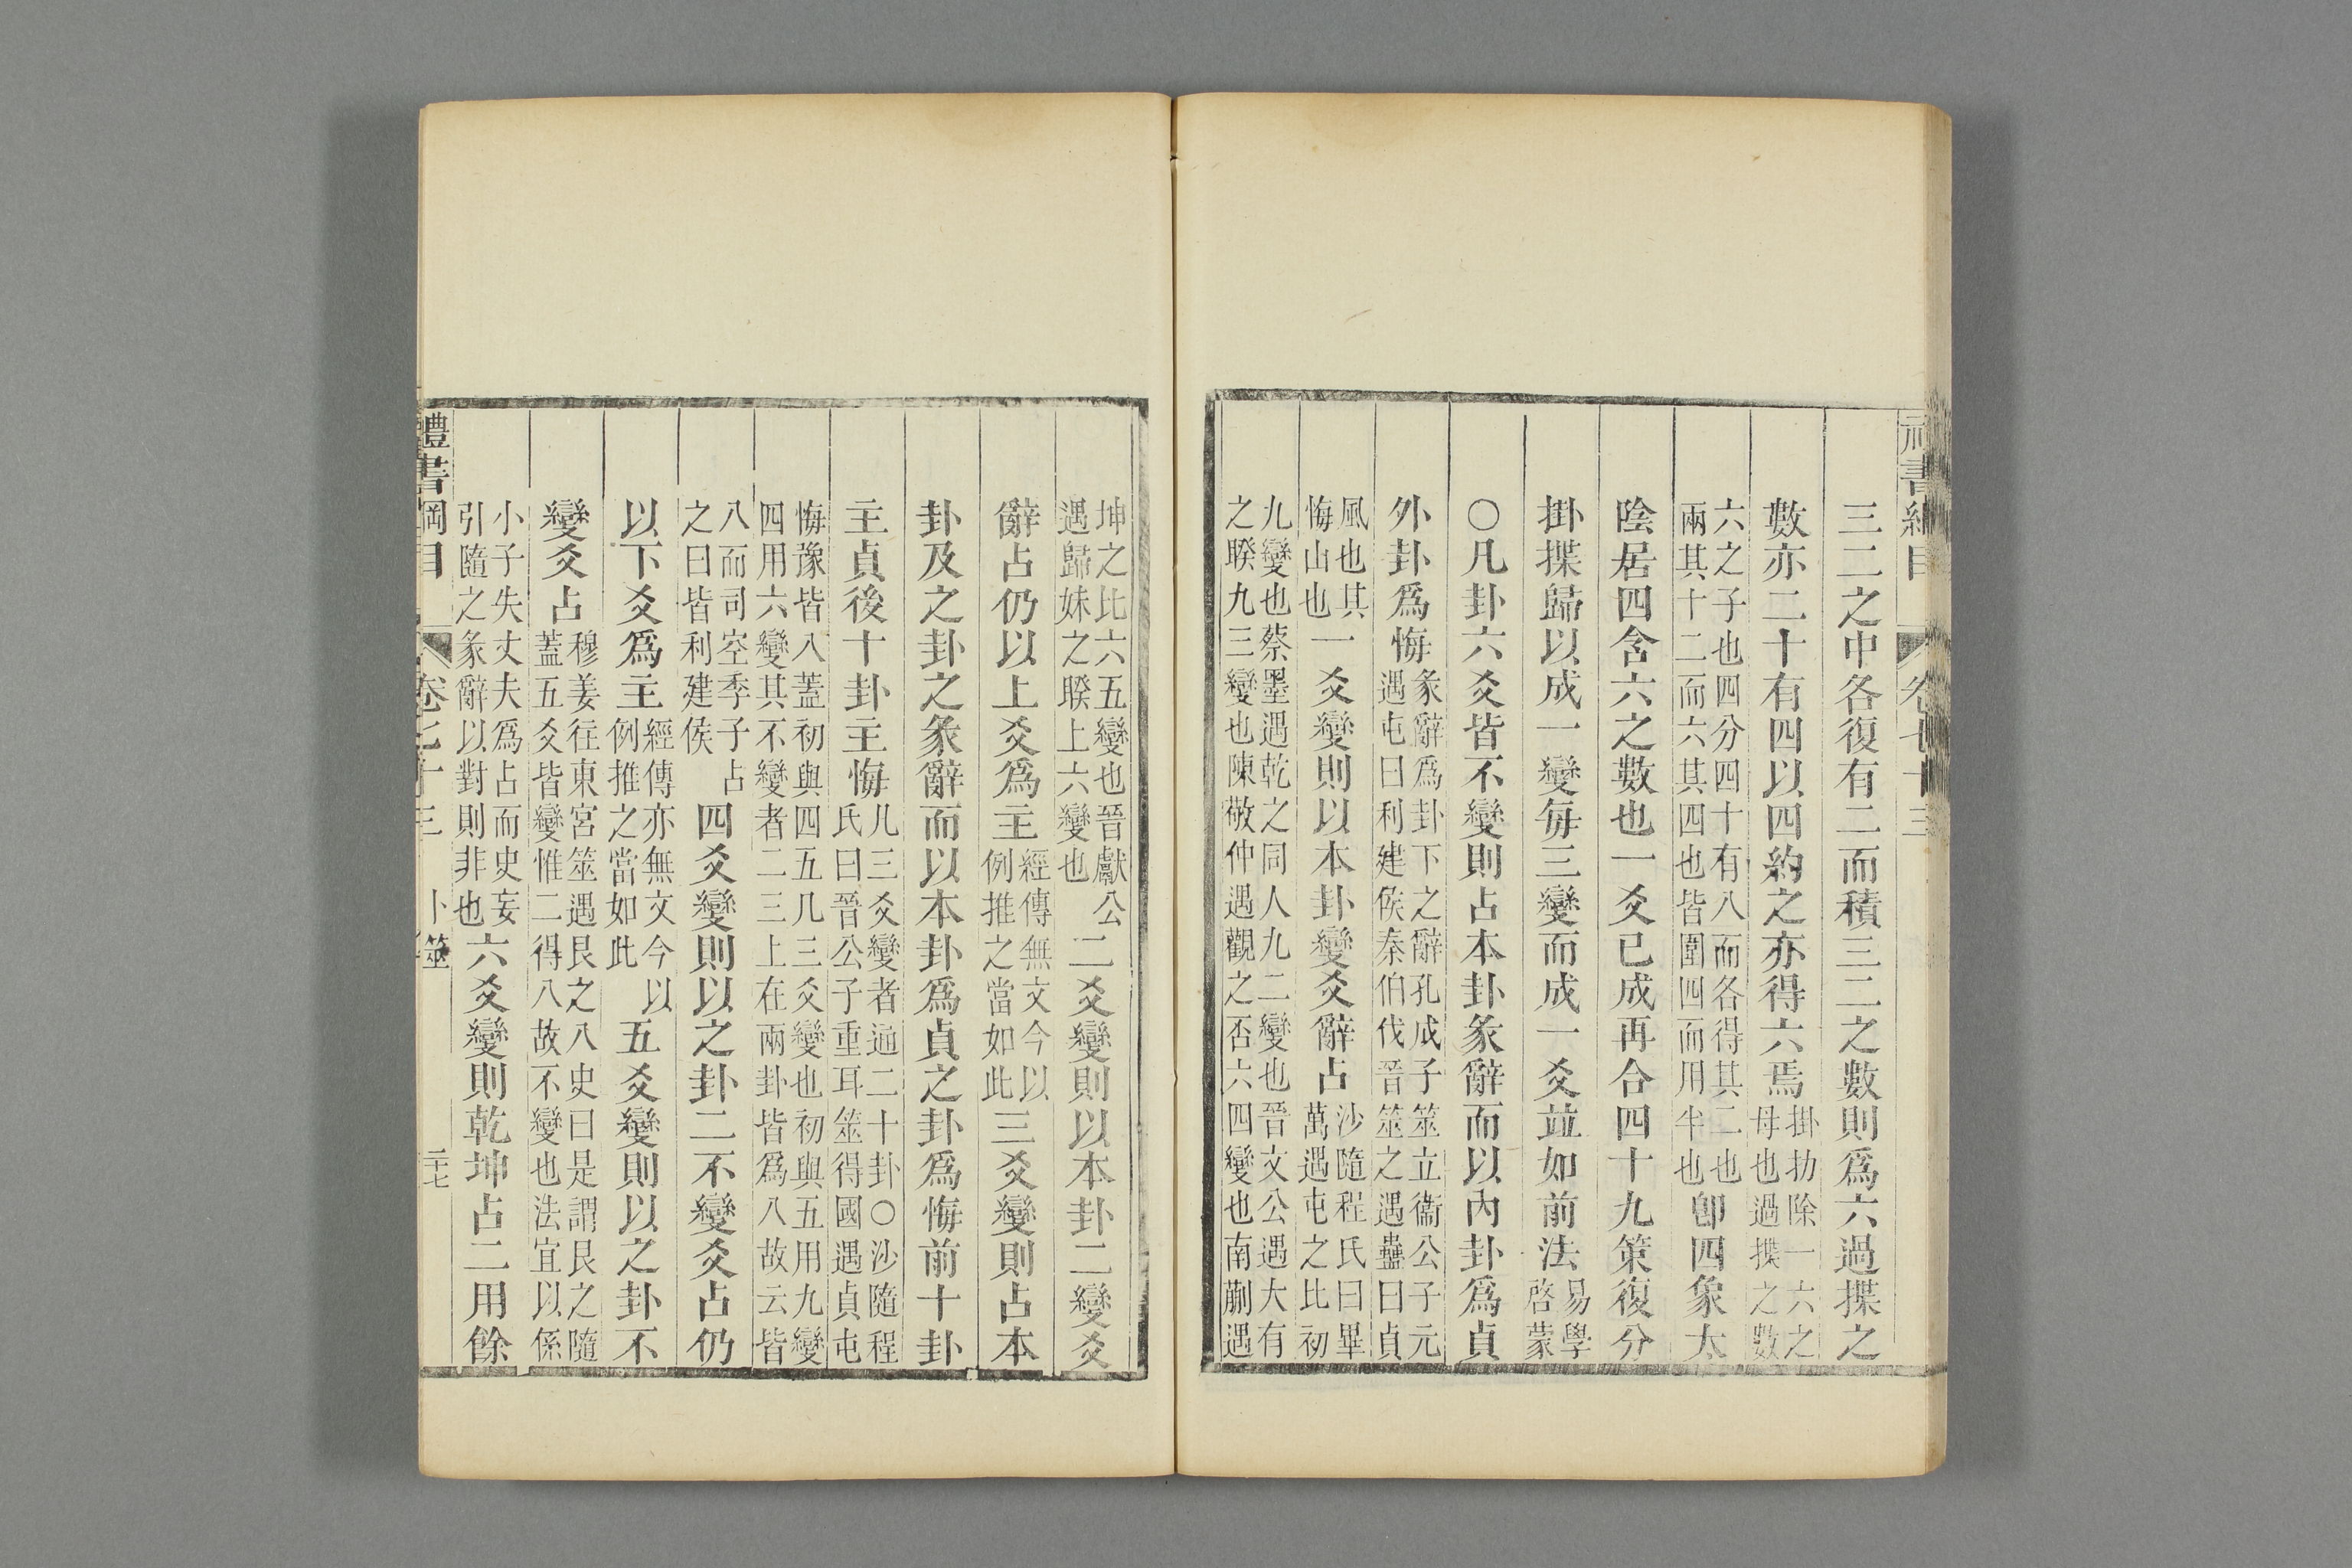 禮書綱目 卷七十三
三二之中各復有二而積三二之數則爲六過揲之
數亦二十有四以四約之亦得六焉掛扐除一六之母也過揲之數
六之子也四分四十有八而各得其二也兩其十二而六其四也皆圍四而用半也卽四象太
陰居四含六之數也一爻已成再合四十九策復分
掛揲歸以成一變每三變而成一爻並如前法易學啓蒙
○凡卦六爻皆不變則占本卦彖辭而以內卦爲貞
外卦爲悔彖辭爲卦下之辭孔成子筮立衞公子元遇屯曰利建侯秦伯伐晉筮之遇蠱曰貞
風也其悔山也一爻變則以本卦變爻辭占沙隨程氏曰畢萬遇屯之比初
九變也蔡墨遇乾之同人九二變也晉文公遇大有之睽九三變也陳敬仲遇觀之否六四變也南蒯遇
坤之比六五變也晉獻公遇歸妹之睽上六變也二爻變則以本卦二變爻
辭占仍以上爻爲主經傳無文今以例推之當如此三爻變則占本
卦及之卦之彖辭而以本卦爲貞之卦爲悔前十卦
主貞後十卦主悔凡三爻變者通二十卦○沙隨程氏曰晉公子重耳筮得國遇貞屯
悔豫皆八蓋初與四五凡三爻變也初與五用九變四用六變其不變者二三上在兩卦皆爲八故云皆
八而司空季子占之曰皆利建侯四爻變則以之卦二不變爻占仍
以下爻爲主經傳亦無文今以例推之當如此五爻變則以之卦不
變爻占穆姜往東宮筮遇艮之八史曰是謂艮之隨蓋五爻皆變惟二得八故不變也法宜以係
小子失丈夫爲占而史妄引隨之彖辭以對則非也六爻變則乾坤占二用餘
禮書綱目 卷七十三 卜筮 二十七